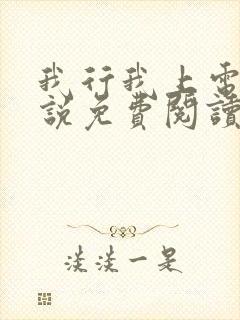 我行我上電
說免費閱讀
淡淡一是